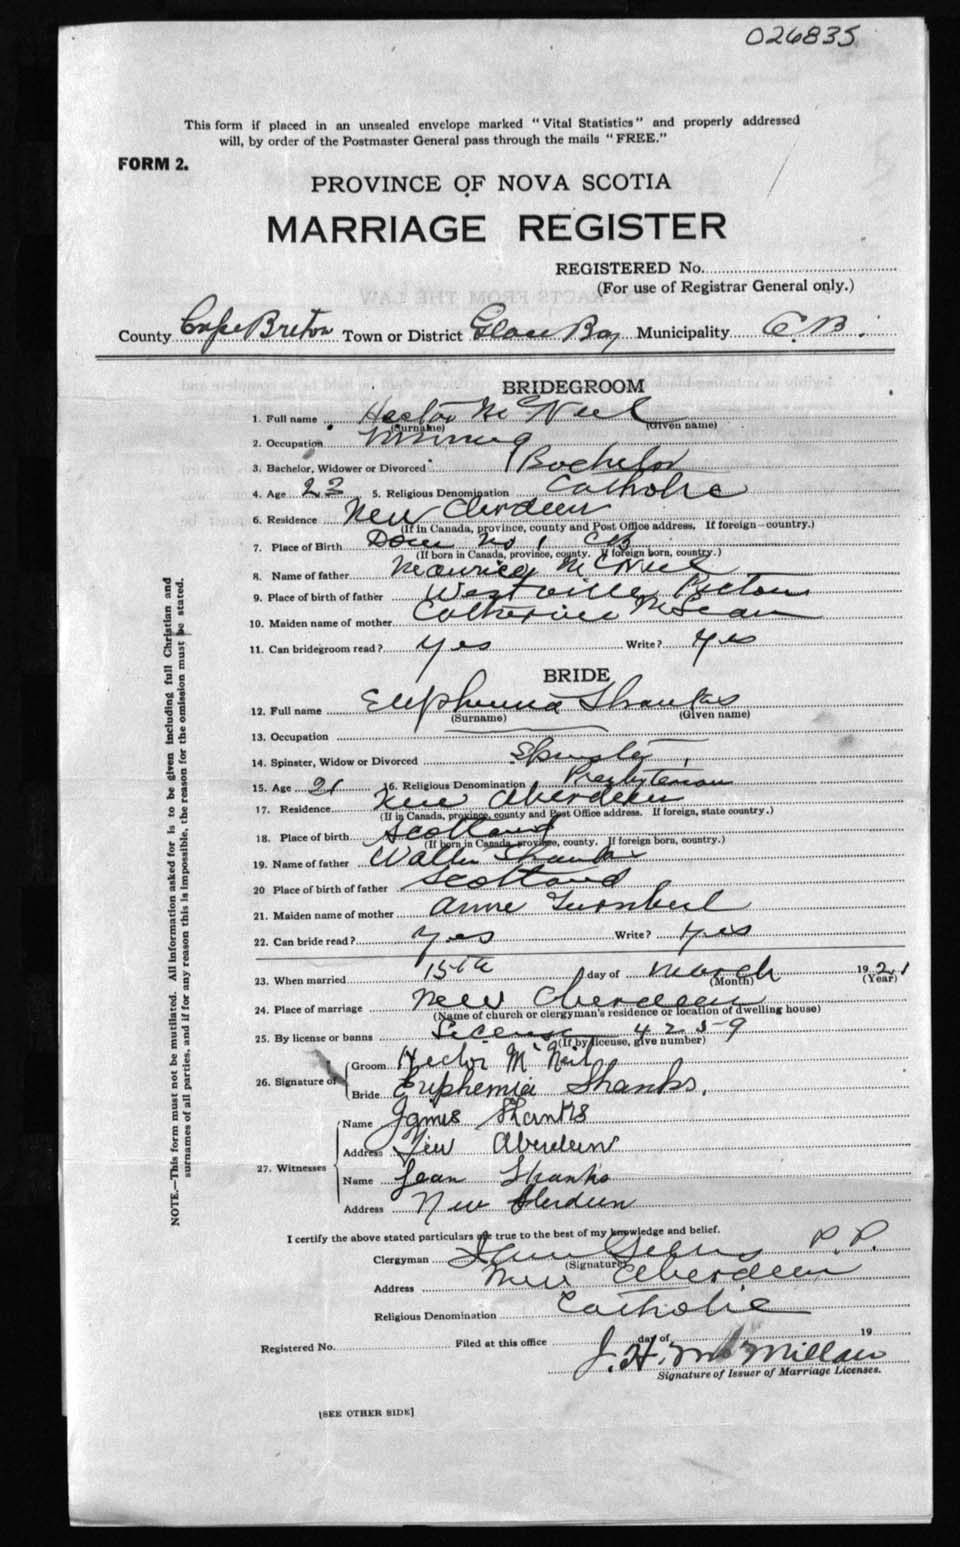 026835
This form if placed in an unsealed envelope marked "Vital Statistics" and properly addressed
will, by order of the Postmaster General pass through the mails "FREE."
FORM 2.
PROVINCE OF NOVA SCOTIA
MARRIAGE REGISTER
REGISTERED No.
(For use of Registrar General only.)
County Cape Breton Town or District Glace Bay Municipality C.B.
BRIDEGROOM
1. Full name Hector McNeil
(Surname) (Given name)
2. Occupation Mining
3. Bachelor, Widower or Divorced Bachelor
4. Age 23 5. Religious Denomination Catholic
6. Residence New Aberdeen
(If in Canada, province, county and Post Office address. If foreign—country.)
7. Place of Birth Dom No 1 CB
(If born in Canada, province, county. If foreign born, country.)
8. Name of father Maurice McNeil
9. Place of birth of father Westville Pictou
10. Maiden name of mother Catherine McLean
11. Can bridegroom read? yes Write? yes
BRIDE
12. Full name Euphemia Shanks
(Surname) (Given name)
13. Occupation
14. Spinster, Widow or Divorced Spinster
15. Age 21 16. Religious Denomination Presbyterian
17. Residence New Aberdeen
(If in Canada, province, county and Post Office address. If foreign, state country.)
18. Place of birth Scotland
(If born in Canada, province, county. If foreign born, country.)
19. Name of father Walter Shanks
20 Place of birth of father Scotland
21. Maiden name of mother Anne Turnbull
22. Can bride read? yes Write? yes
23. When married 15th day of March 1921
(Month) (Year)
24. Place of marriage New Aberdeen
(Name of church or clergyman's residence or location of dwelling house)
25. By license or banns License 4259
(If by license, give number)
26. Signature of
Groom Hector McNeil
Bride Euphemia Shanks.
27. Witnesses
Name James Shanks
Address New Aberdeen
Name Jean Shanks
Address New Aberdeen
I certify the above stated particulars are true to the best of my knowledge and belief.
Clergyman P.P.
(Signature)
Address New Aberdeen
Religious Denomination Catholic
Registered No. Filed at this office day of 19
J. H. McMillan
Signature of Issuer of Marriage Licenses.
[SEE OTHER SIDE]
NOTE.—This form must not be mutilated. All information asked for is to be given including full Christian and
surnames of all parties, and if for any reason this is impossible, the reason for the omission must be stated.